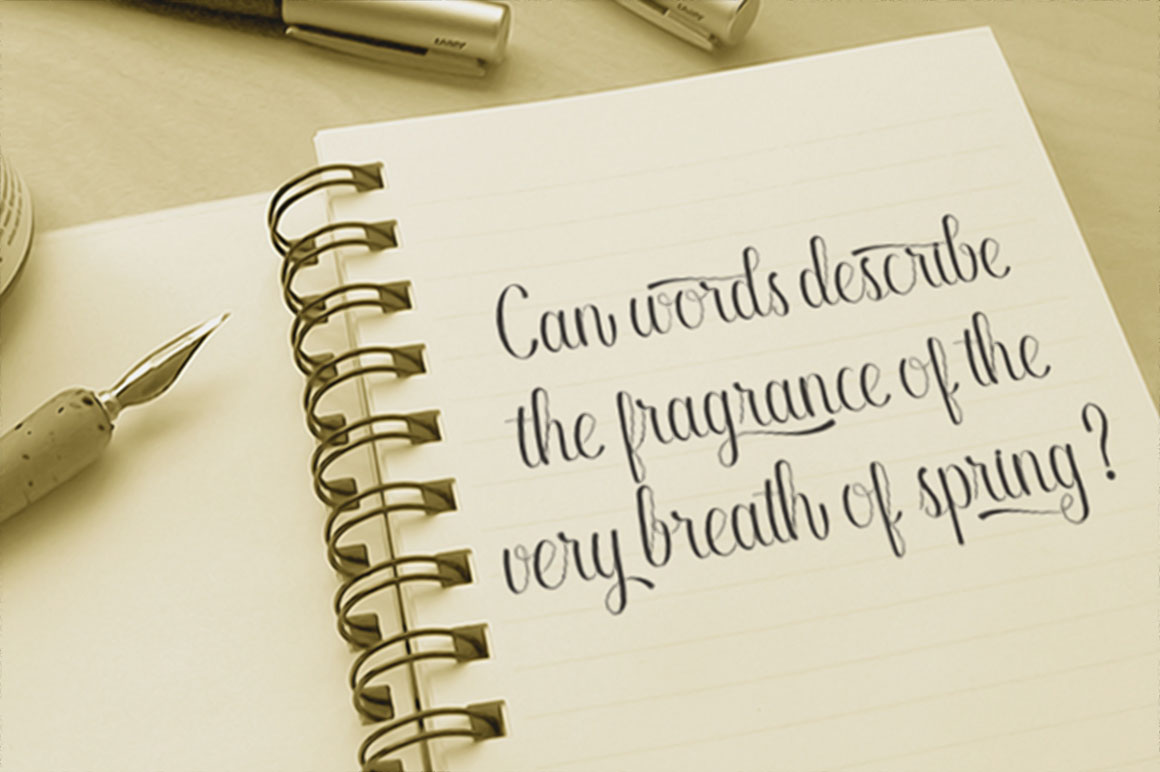 LAMY
Can words describe
the fragrance of the
very breath of spring?